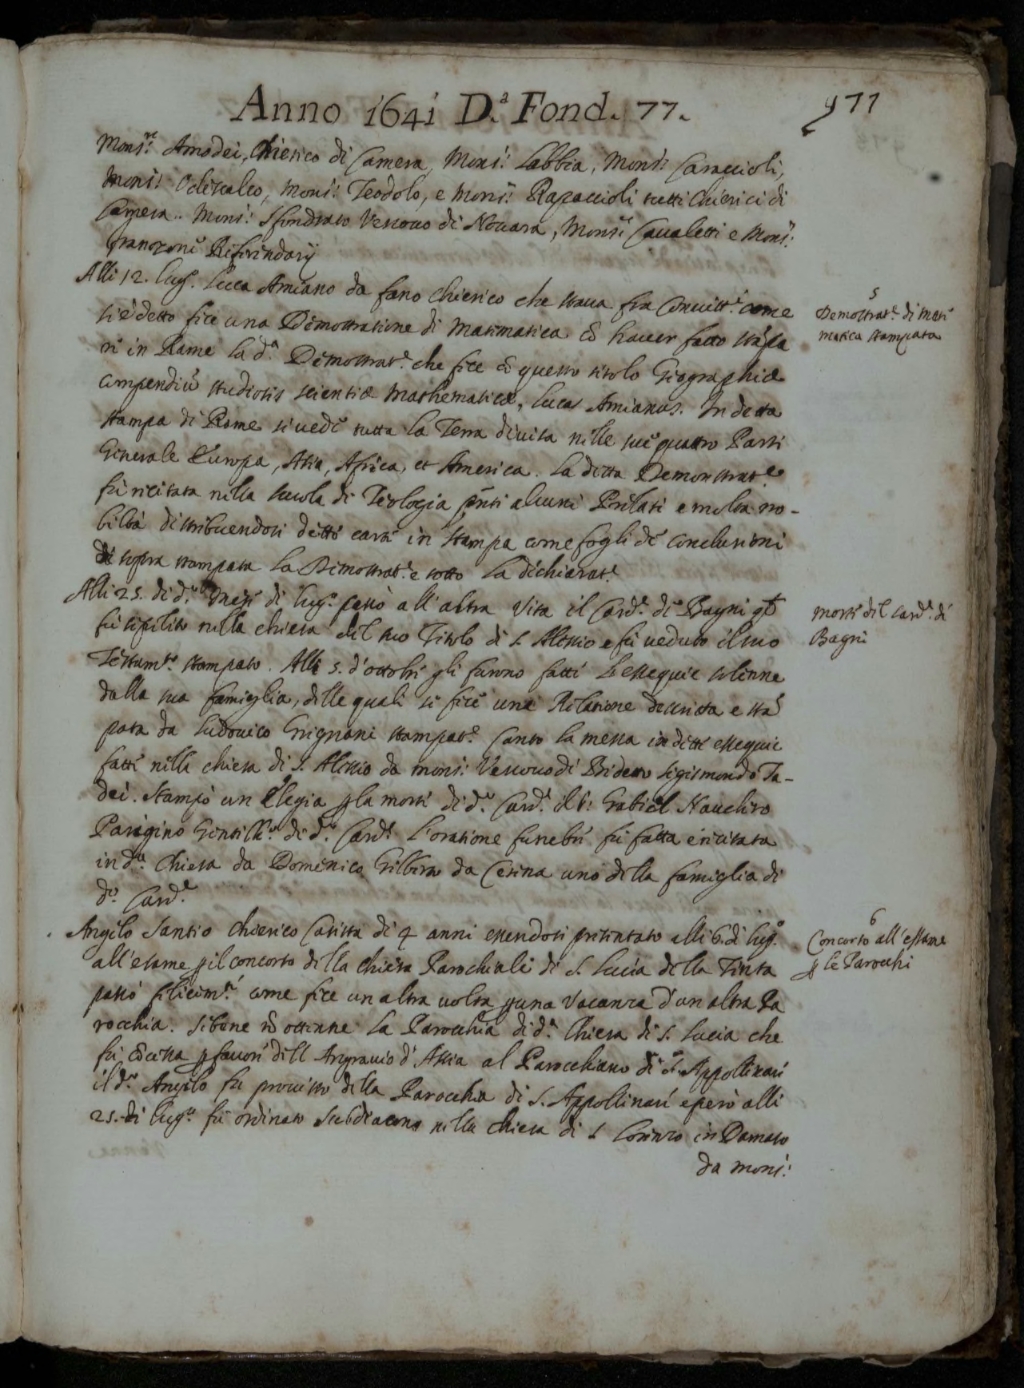 Anno 1641 D.ª Fond. 77.
977
Mons.re Amodei, Chierico di Camera, Mons.r Labbia, Mons.r Caraccioli,
Mons.r Odescalco, Mons.r Teodolo, e Mons.r Rapaccioli tutti Chierici di
Camera. Mons.r Sfondrato Vescovo di Novara, Mons.r Cavaletti e Mons.r
Franzone Riferindarij
Alli 12. lug.o Luca Amiano da fano chierico che stava fra Convitt.i come
si è detto fece una Demostratione di Matimatica cõ haver fatto stãpa
re in Rame la d.a Demostrat.e che fece cõ questo titolo Giographiæ
compendiũ studiosis scientiæ Mathematicæ, Lucas Amianus. In detta
stampa di Rame si vede tutta la Terra divisa nelle sue quattro Parti
Generale Europa, Asia, Africa, et America. La detta Demonstrat.e
fu recitata nella scuola di Teologia pñti alcuni Prelati e molta no-
biltà distribuendosi dette carte in stampa come fogli de conclusioni
di sopra stampata la Demostrat.e e sotto la dichiarat.e
Alli 25. di d.o mese di lug.o passò all'altra vita il Card.e di Bagni qto
fu sepelito nella chiesa del suo Titolo di S. Alessio e fu veduto il suo
Testam.to stampato. Alli 5. d'ottobre gli furono fatti l'essequie solenne
dalla sua famiglia, delle quali si fece una Relatione descritta e stã
pata da Ludovico Grignani stampat.e Canto la messa in dette essequie
fatte nella chiesa di S. Alessio da mons.r Vescovo di Bidetto Sigismondo Ta-
dei. Stampò un Elegia p la morte di d.o Card.e Gabriel Naudeo
Parigino Gentilh.o di d.o Card.e L'oratione funebre fu fatta e recitata
in d.a Chiesa da Domenico Gilberto da Cesena uno della famiglia di
d.o Card.e
Angelo Santio chierico Casista di 4 anni essendosi presentato alli 6. di lug.o
all'esame p il concorso della chiesa Parochiale di S. Lucia della Tinta
passò felicem.te come fece un altra volta p una Vacanza d'un altra Pa
rocchia. Sibene nõ ottenne la Parocchia di d.a Chiesa di S. Lucia che
fu p favore dell Angravio d'Assia al Parocchiano di S. Appollinare
il d.o Angelo fu provisto della Parocchia di S. Appollinare e però alli
25. di lug.o fu ordinato Subdiacono nella chiesa di S. Lorenzo in Damaso
da Mons.r
5
Demostrat.e di Mate
matica stampata
Morte del Card.e di
Bagni
6
Concorso all'essame
p le Parocchi